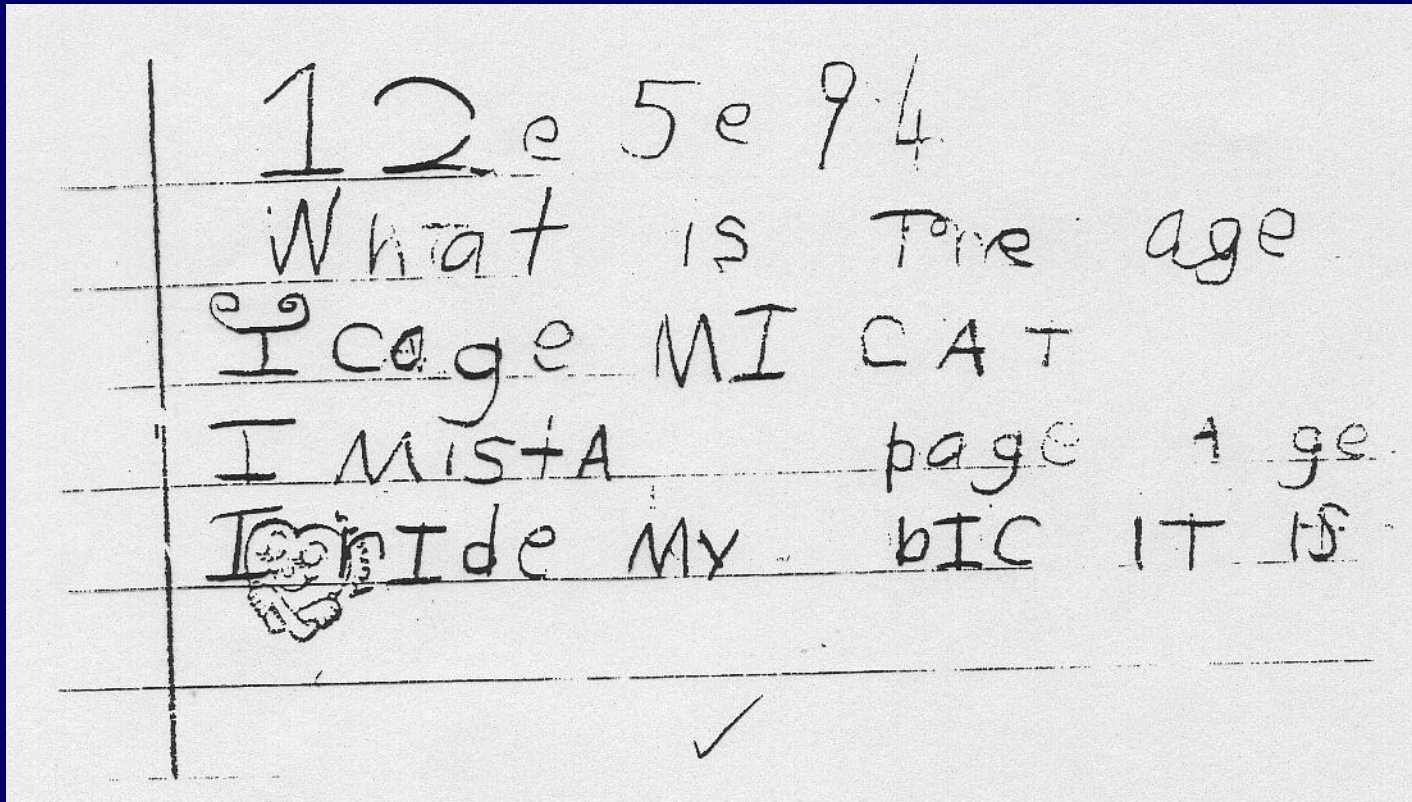 12e 5e 94
What is The age
I cage MI CAT
I MistA page A ge
I rIde My bIC IT IS